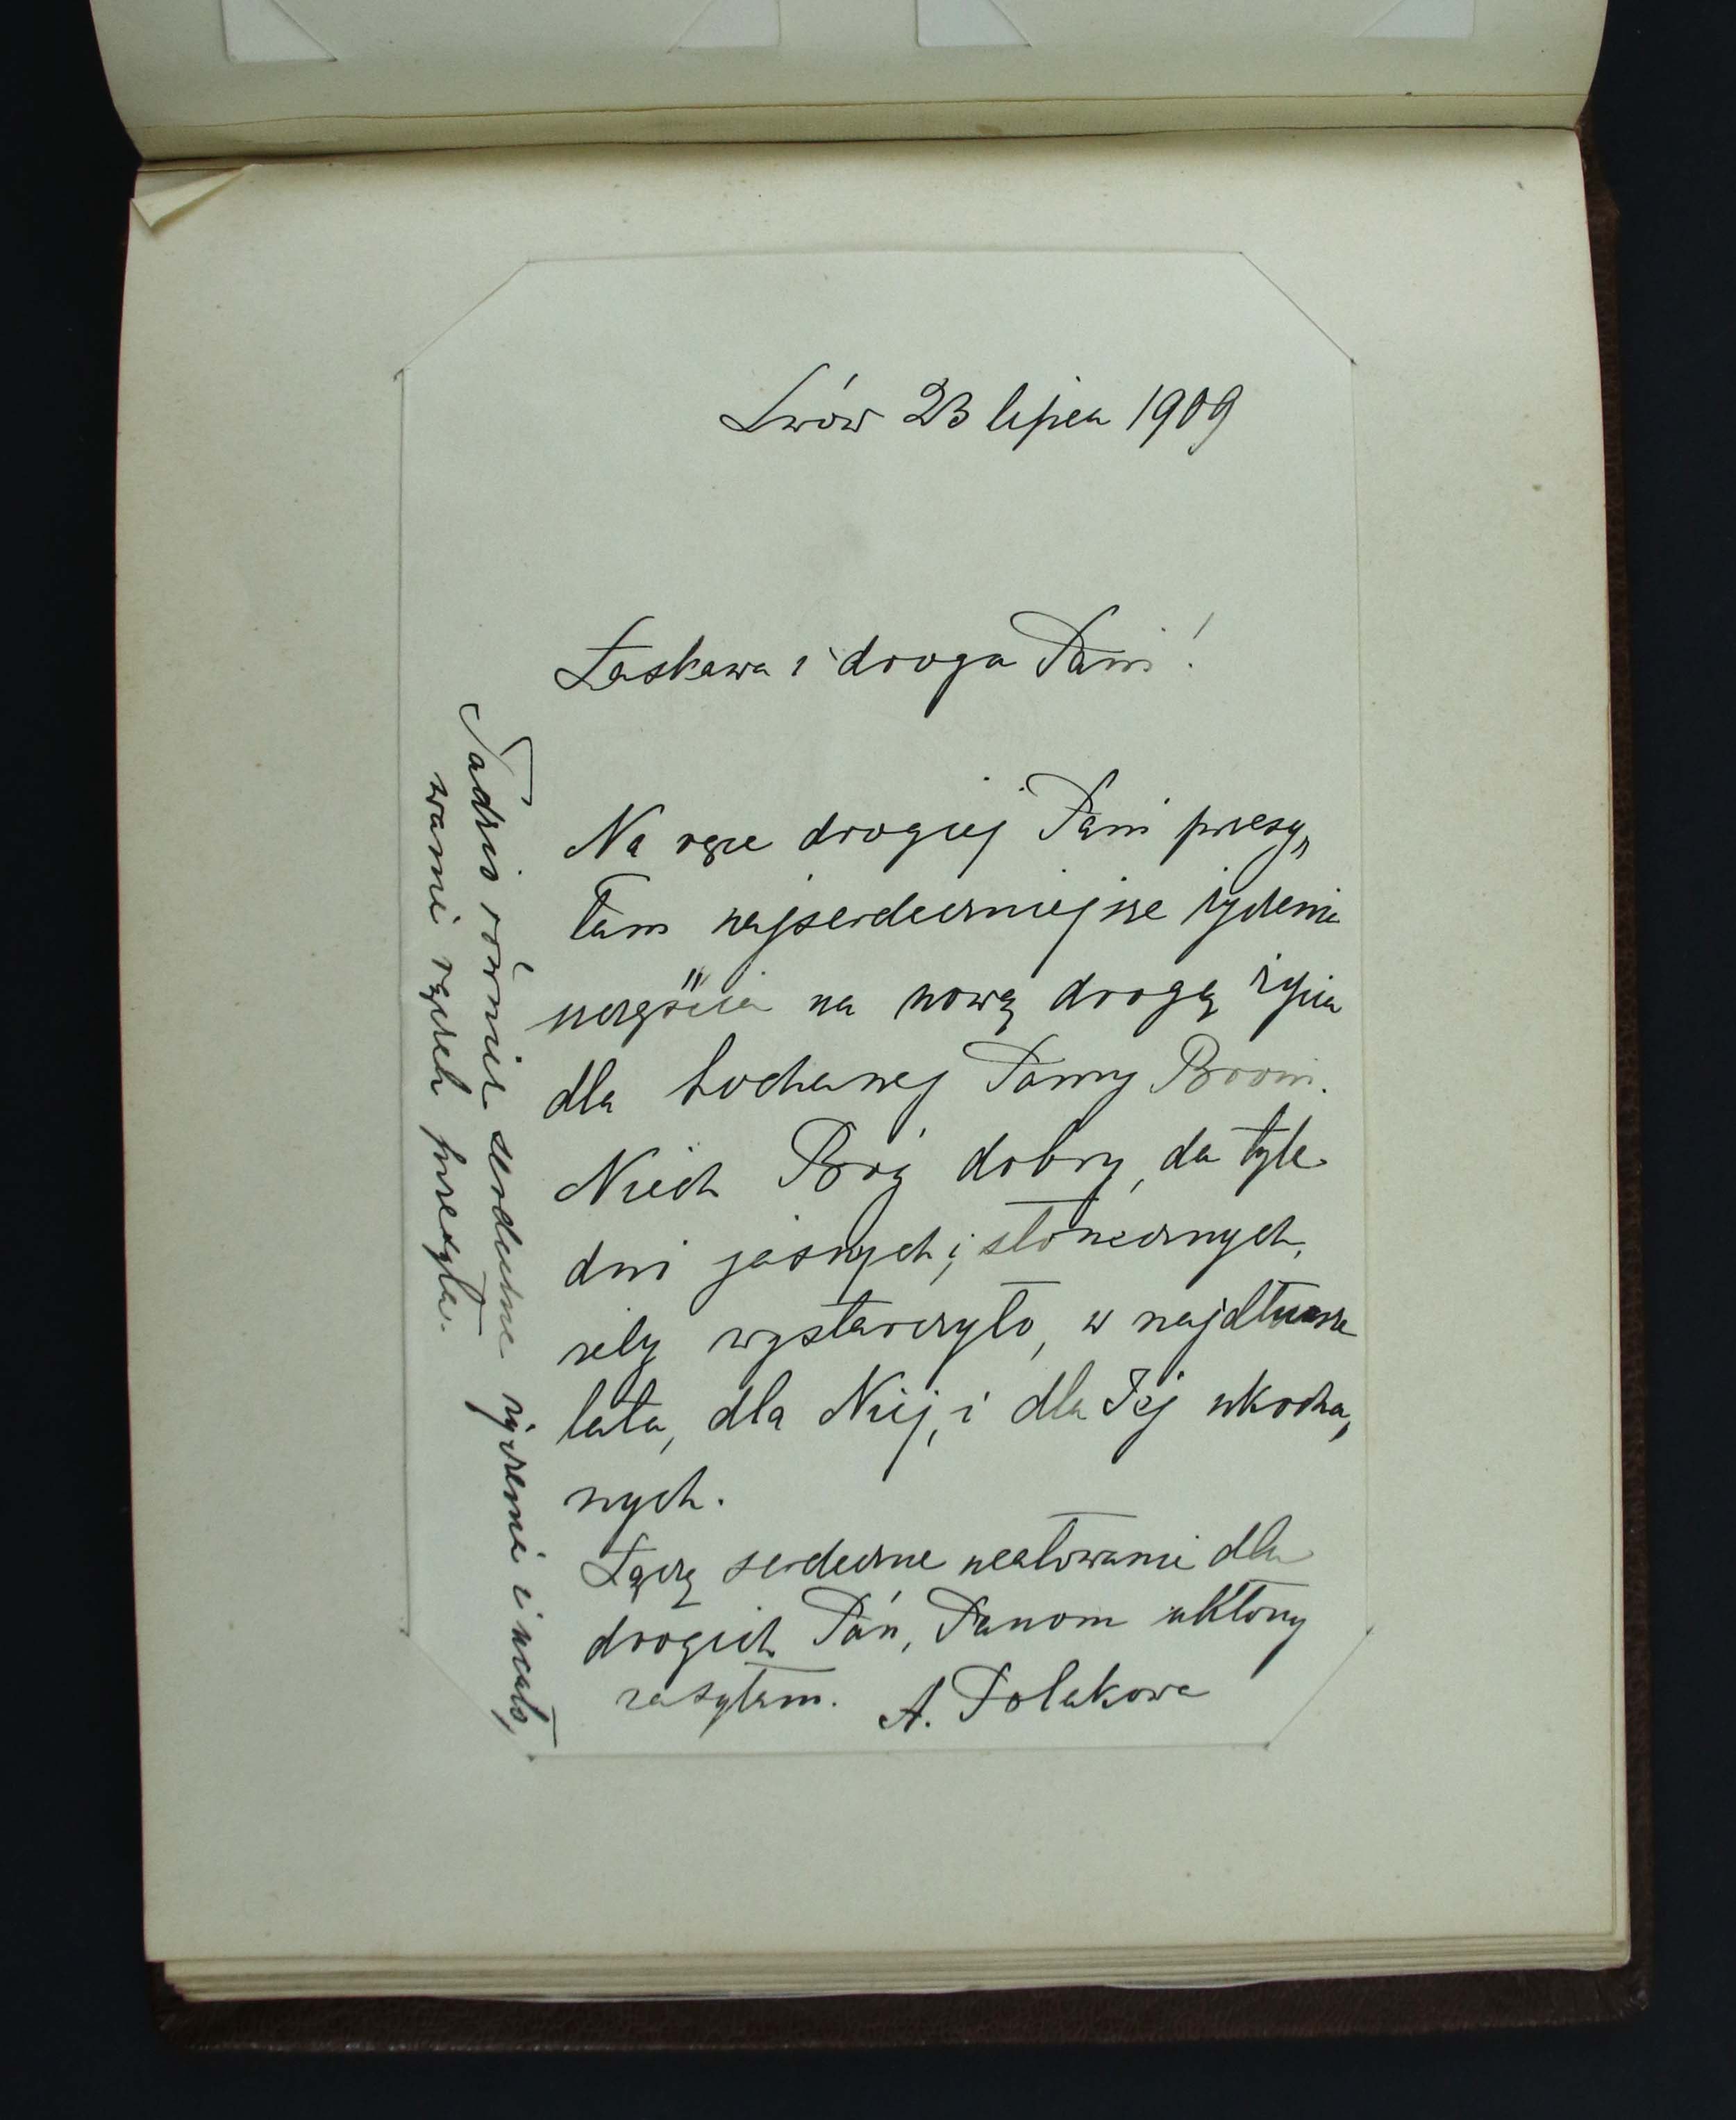 Lwów 23 lipca 1909
Łaskawa i droga Pani!
Na ręce drogiej Pani przesy„
łam najserdeczniejsze życzenia
szczęścia na nową drogę życia
dla kochanej Panny Broni.
Niech Bóg dobry, da tyle
dni jasnych, i słonecznych,
żeby wystarczyło, w najdłuższe
lata, dla Niej, i dla Jej ukocha„
nych.
Łączę serdeczne ucałowania dla
drogich Pań, Panom ukłony
zasyłam. A. Polakowa
Tadzio również serdeczne życzenia i ucało„
wania rączek przesyła.